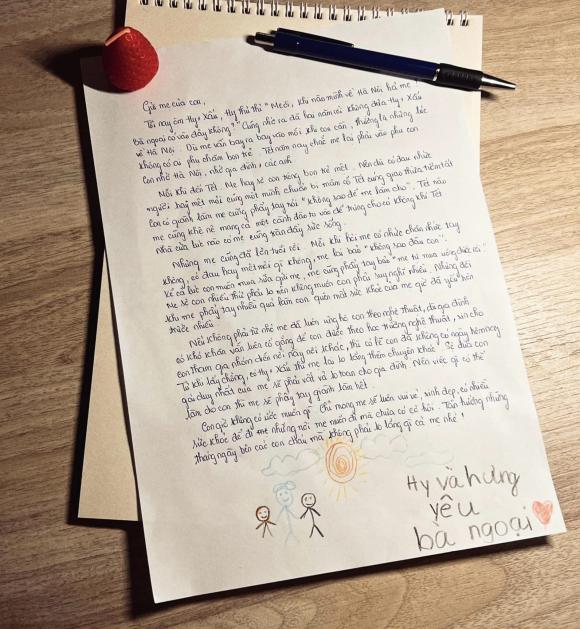 Gửi mẹ của con,
Tối nay ôm Hy+ Xấu, Hy thủ thỉ " Mẹ ơi, khi nào mình về Hà Nội hả mẹ?
Bà ngoại có vào đây không?" Cũng chờ ra đã hai năm rồi không đưa Hy+ Xấu
về Hà Nội. Dù mẹ vẫn bay ra bay vào mỗi khi con cần, thường là những lúc
không có ai phụ chăm bọn trẻ. Tết năm nay chắc mẹ lại phải vào phụ con
Con nhớ Hà Nội, nhớ gia đình, các anh.
Mỗi khi đến Tết. Mẹ hay sẽ con trông bọn trẻ mệt. Nên dù có đau nhức
người hay mệt mỏi cũng một mình chuẩn bị mâm cỗ Tết cúng giao thừa tiễn tết
Con có giành làm mẹ cũng phẩy tay nói "không sao để mẹ làm cho". Tết nào
mẹ cũng khệ nệ mang cả một cành đào từ vào để trưng cho có không khí Tết
Nhà cửa lúc nào có mẹ cũng tràn đầy sức sống.
Nhưng mẹ cũng đã lớn tuổi rồi. Mỗi khi hỏi mẹ có nhức chân nhức tay
không, có đau hay mệt mỏi gì không, mẹ lại bảo "không sao đâu con".
Kể cả lúc con muốn mua sữa gửi mẹ, mẹ cũng phẩy tay bảo "mẹ tự mua uống được rồi"
Mẹ sợ con nhiều thứ phải lo nên không muốn con phải suy nghĩ nhiều. Nhưng đôi
khi mẹ phẩy tay nhiều quá làm con quên mất sức khỏe của mẹ giờ đã yếu hơn
trước nhiều.
Nếu không phải từ nhỏ mẹ đã luôn ủng hộ con theo nghệ thuật, dù gia đình
có khó khăn vẫn luôn cố gắng để con được theo học trường nghệ thuật, xin cho
con tham gia nhóm chỗ nọ này nơi khác, thì có lẽ con đã không có ngày hôm nay
Từ khi lấy chồng, có Hy+ Xấu thì mẹ lại lo lắng thêm chuyện khác. Sợ đứa con
gái duy nhất của mẹ sẽ phải vất vả lo toan cho gia đình. Nên việc gì có thể
làm cho con thì mẹ sẽ phẩy tay giành làm hết.
Con giờ không có ước muốn gì. Chỉ mong mẹ sẽ luôn vui vẻ, xinh đẹp, có nhiều
sức khỏe để đi mẹ những nơi mẹ muốn đi mà chưa có cơ hội. Tận hưởng những
tháng ngày bên các con cháu mà không phải lo lắng gì cả mẹ nhé!
Hy và hưng
yêu
bà ngoại